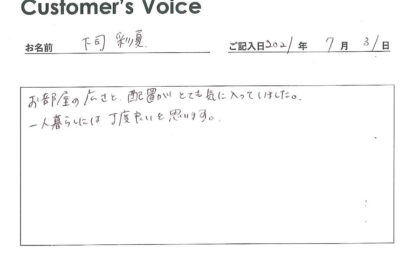 Customer's Voice
お名前 下司 彩夏 ご記入日2021年 7月 31日
お部屋の広さと、配置がとても気に入っていました。
一人暮らしには丁度良いと思います。